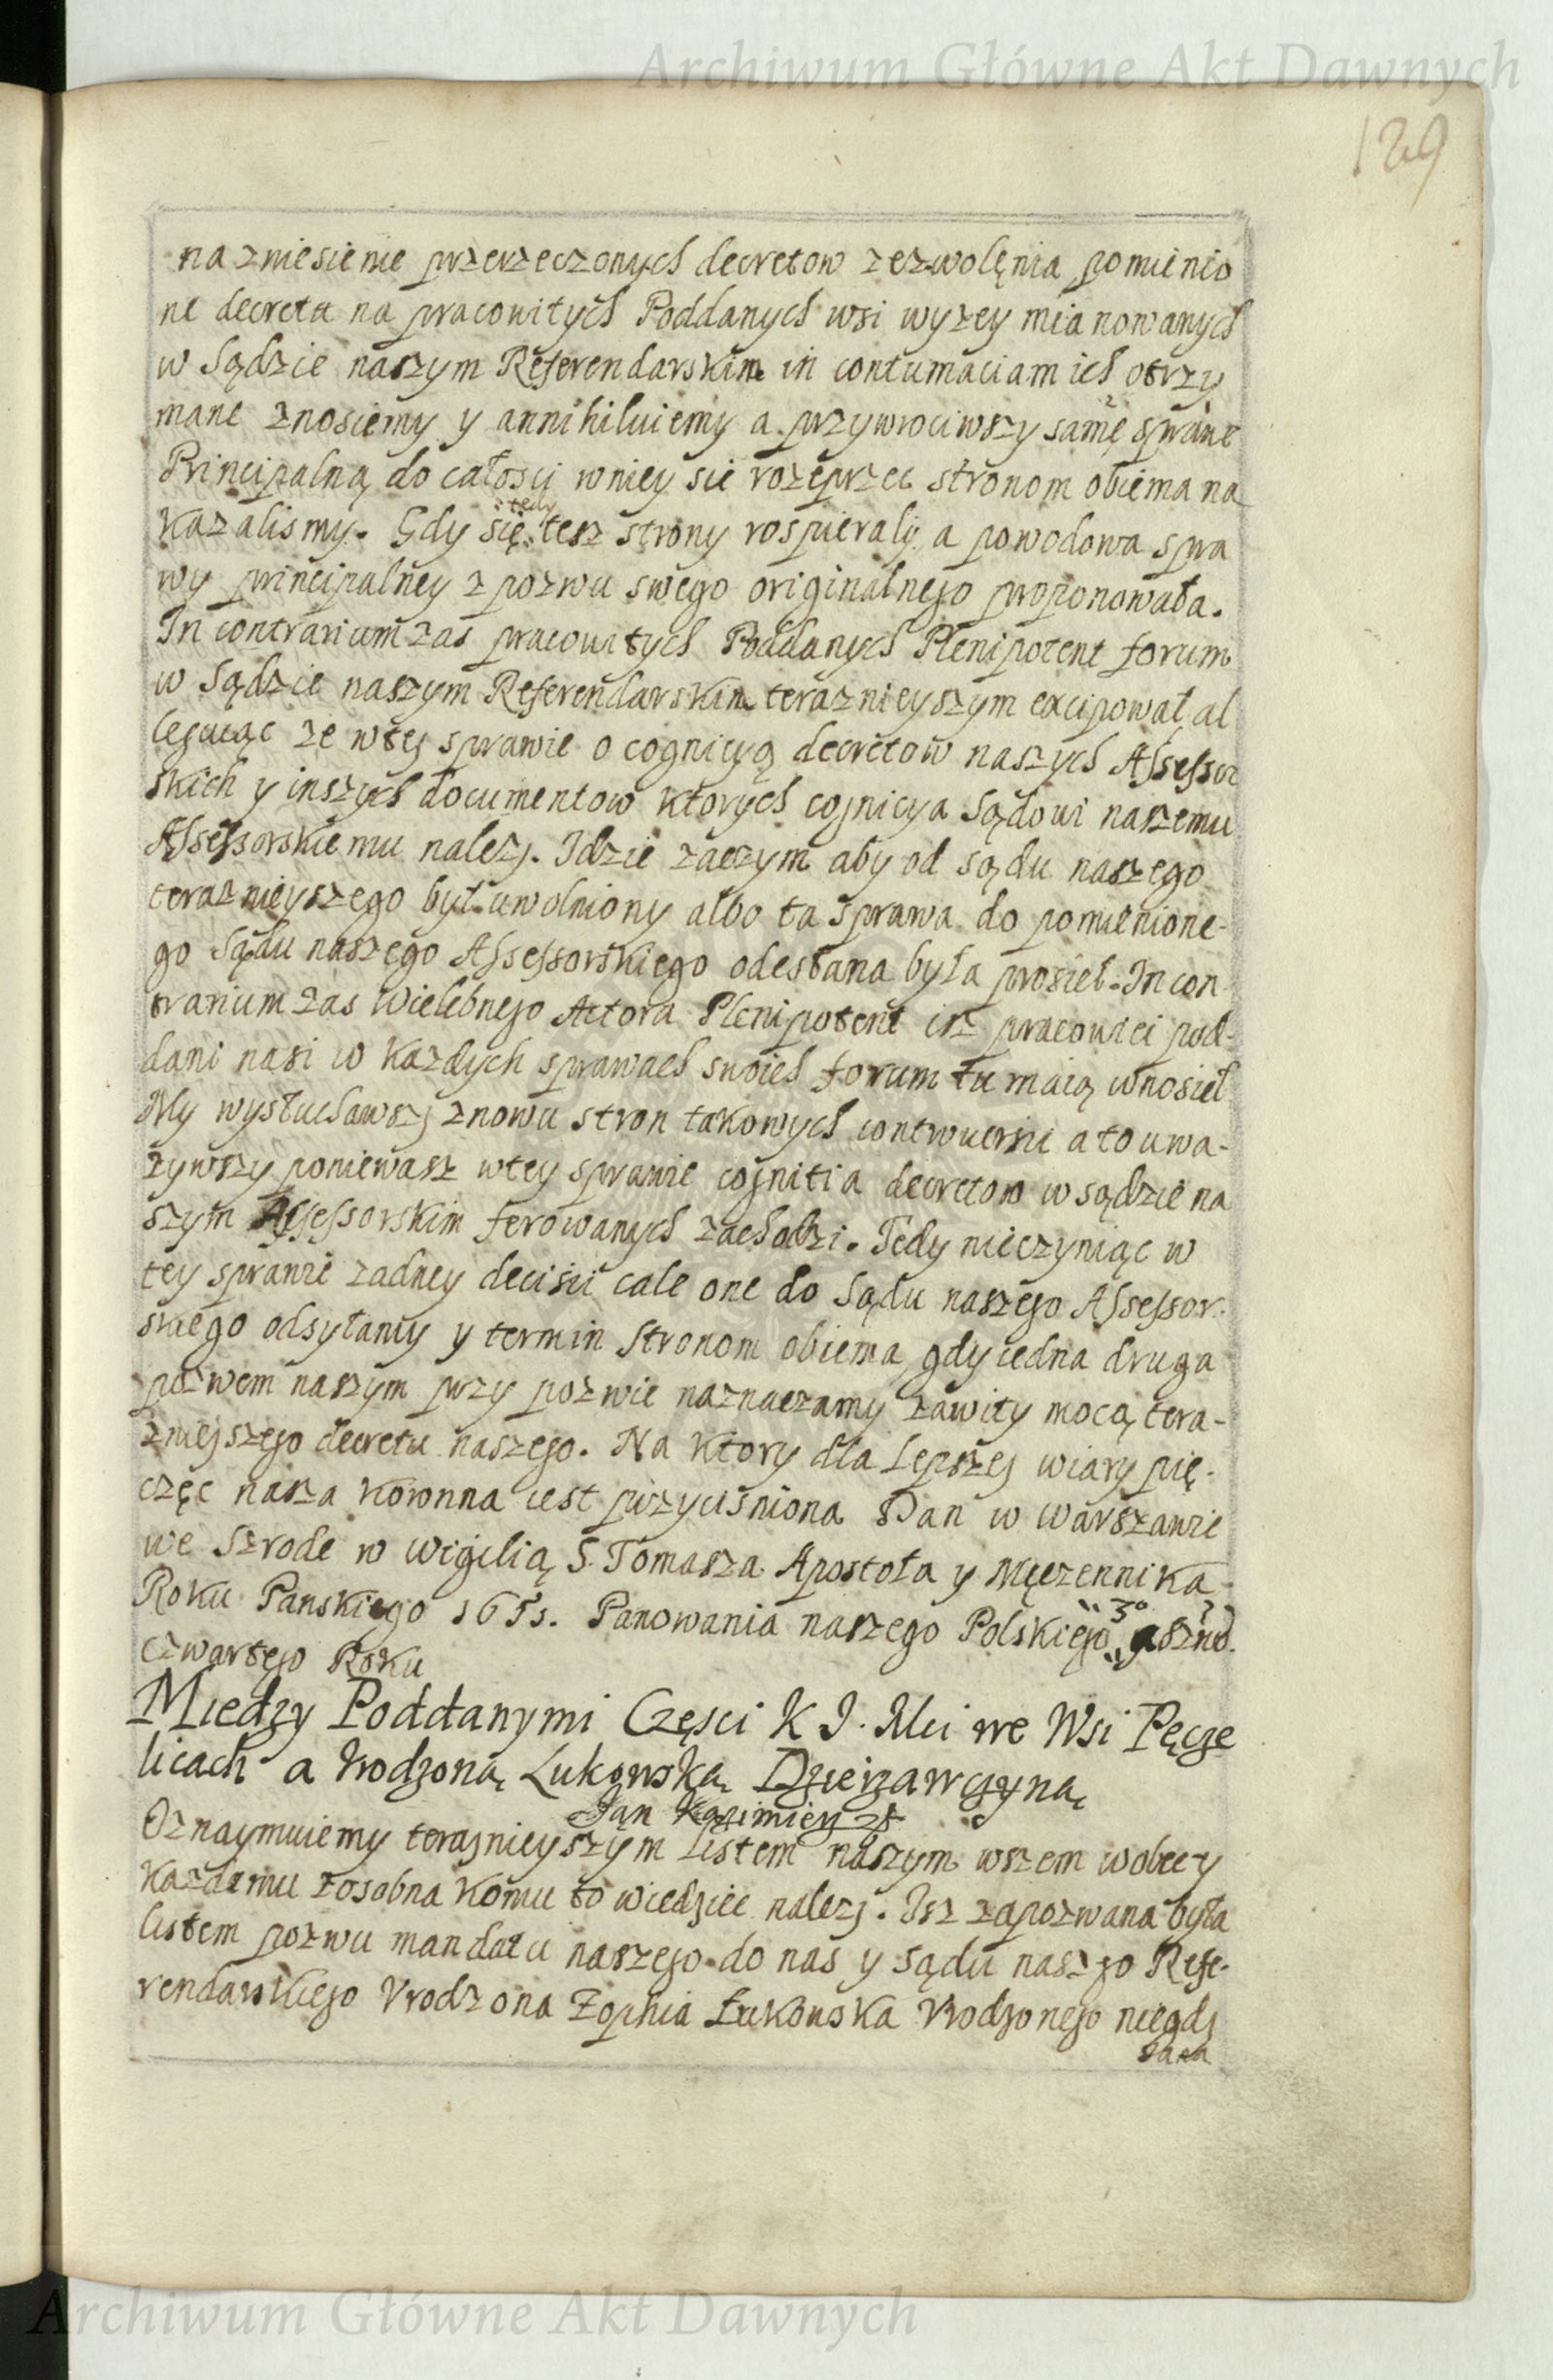 Archiwum Główne Akt Dawnych
129
na zniesienie przerzeczonych decretow zezwolęnia pomienio
ne decreta na pracowitych Poddanych wsi wyzey mianowanych
w Sądzie naszym Referendarskim in contumaciam ich otrzy
mane znosiemy y annihiluiemy a przywrociwszy samę sprawę
Principalną do całosci w niey sie rozeprzec stronom obiema na
kazalismy. Gdy się tedy tesz strony rospieraly a powodowa spra
wy principalney z pozwu swego originalnego proponowała.
In contrarium zas pracowitych Poddanych Plenipotent forum
w Sądzie naszym Referendarskim teraznieyszym excipował al
leguiąc ze wtey sprawie o cognicyą decretow naszych Assessor
skich y inszych documentow ktorych cognicya Sądowi naszemu
Assessorskiemu nalezy. Idzie zaczym aby od sądu naszego
teraznieyszego był uwolniony albo ta sprawa do pomienione-
go Sądu naszego Assessorskiego odesłana była prosieł. In con
trarium zas Wielebnego Actora Plenipotent isz pracowici pod-
dani nasi w kazdych sprawach swoich forum tu maią wnosieł
My wysłuchawszy znowu stron takowych controuersii a to uwa-
zywszy poniewasz wtey sprawie cognitia decretow w sądzie na
szym Assessorskim ferowanych zachodzi. Tedy nieczyniąc w
tey sprawie zadney decisii cale one do Sądu naszego Assessor-
skiego odsyłamy y termin Stronom obiema gdy iedna druga
pozwem naszym przy pozwie naznaczamy zawity mocą tera-
znieyszego decretu naszego. Na ktory dla Lepszey wiary pię-
częc nasza koronna iest przycisniona Dan w Warszawie
we Szrode w Wigilią S. Tomasza Apostoła y Męczennika
Roku Panskiego 1651. Panowania naszego Polskiego 3° a Szwed.
czwartego Roku
Miedzy Poddanymi Częsci K J. Mci we Wsi Pęcze
licach a Urodzoną Lukowską Dzierzawczyną
Jan Kazimierz
Oznaymuiemy teraznieyszym Listem naszym wszem wobec y
kazdemu zosobna komu to wiedziec nalezy. Isz zapozwana była
listem pozwu mandatu naszego do nas y sądu naszego Refe-
rendarskiego Vrodzona Zophia Łukowska Vrodzonego niegdy
Jana
Archiwum Główne Akt Dawnych